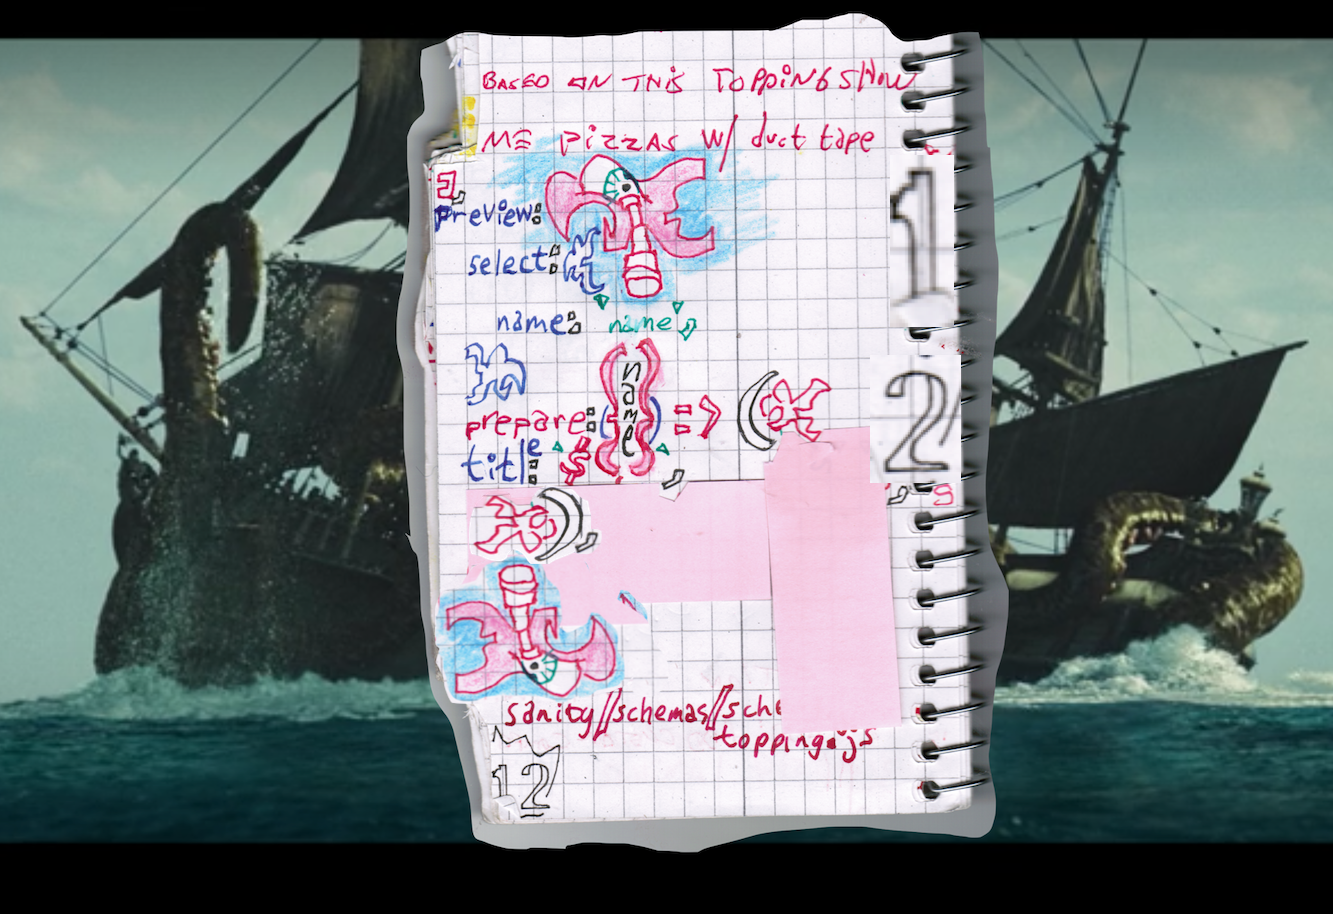 BASED ON THIS TOPPING SHOW
ME PIZZAS W/ duct tape
1
preview:
select:
name: 'name',
prepare: ({name}) => (
title: `${name}`,
2
),
sanity//schemas//sche
topping.js
12